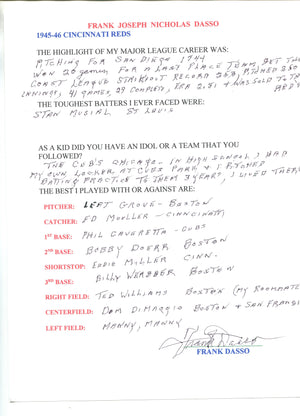 FRANK JOSEPH NICHOLAS DASSO
1945-46 CINCINNATI REDS
THE HIGHLIGHT OF MY MAJOR LEAGUE CAREER WAS:
PITCHING FOR SAN DIEGO 1944
WON 20 games, FOR A LAST PLACE TEAM, SET THE
COAST LEAGUE STRIKEOUT RECORD 253, PITCHED
INNINGS, 41 GAMES, 29 COMPLETE, ERA 2.81 & WAS SOLD TO THE
REDS
THE TOUGHEST BATTERS I EVER FACED WERE:
STAN MUSIAL ST LOUIS
AS A KID DID YOU HAVE AN IDOL OR A TEAM THAT YOU
FOLLOWED?
THE CUBS CHICAGO - IN HIGH SCHOOL I HAD
MY OWN LOCKER AT CUBS PARK & I PITCHED
BATTING PRACTICE TO THEM 3 YEARS, I LIVED THERE
THE BEST I PLAYED WITH OR AGAINST ARE:
PITCHER: LEFT GROVE - BOSTON
CATCHER: ED MUELLER - CINNCINATI
1st BASE: PHIL CAVERETTA - CUBS
2nd BASE: BOBBY DOERR BOSTON
SHORTSTOP: EDDIE MILLER CINN.
3rd BASE: BILLY WERBBER BOSTON
RIGHT FIELD: TED WILLIAMS BOSTON (MY ROOMMATE
CENTERFIELD: DOM DIMAGGIO BOSTON & SAN FRANSI
LEFT FIELD: MANNY, MANNY
Frank Dasso
FRANK DASSO